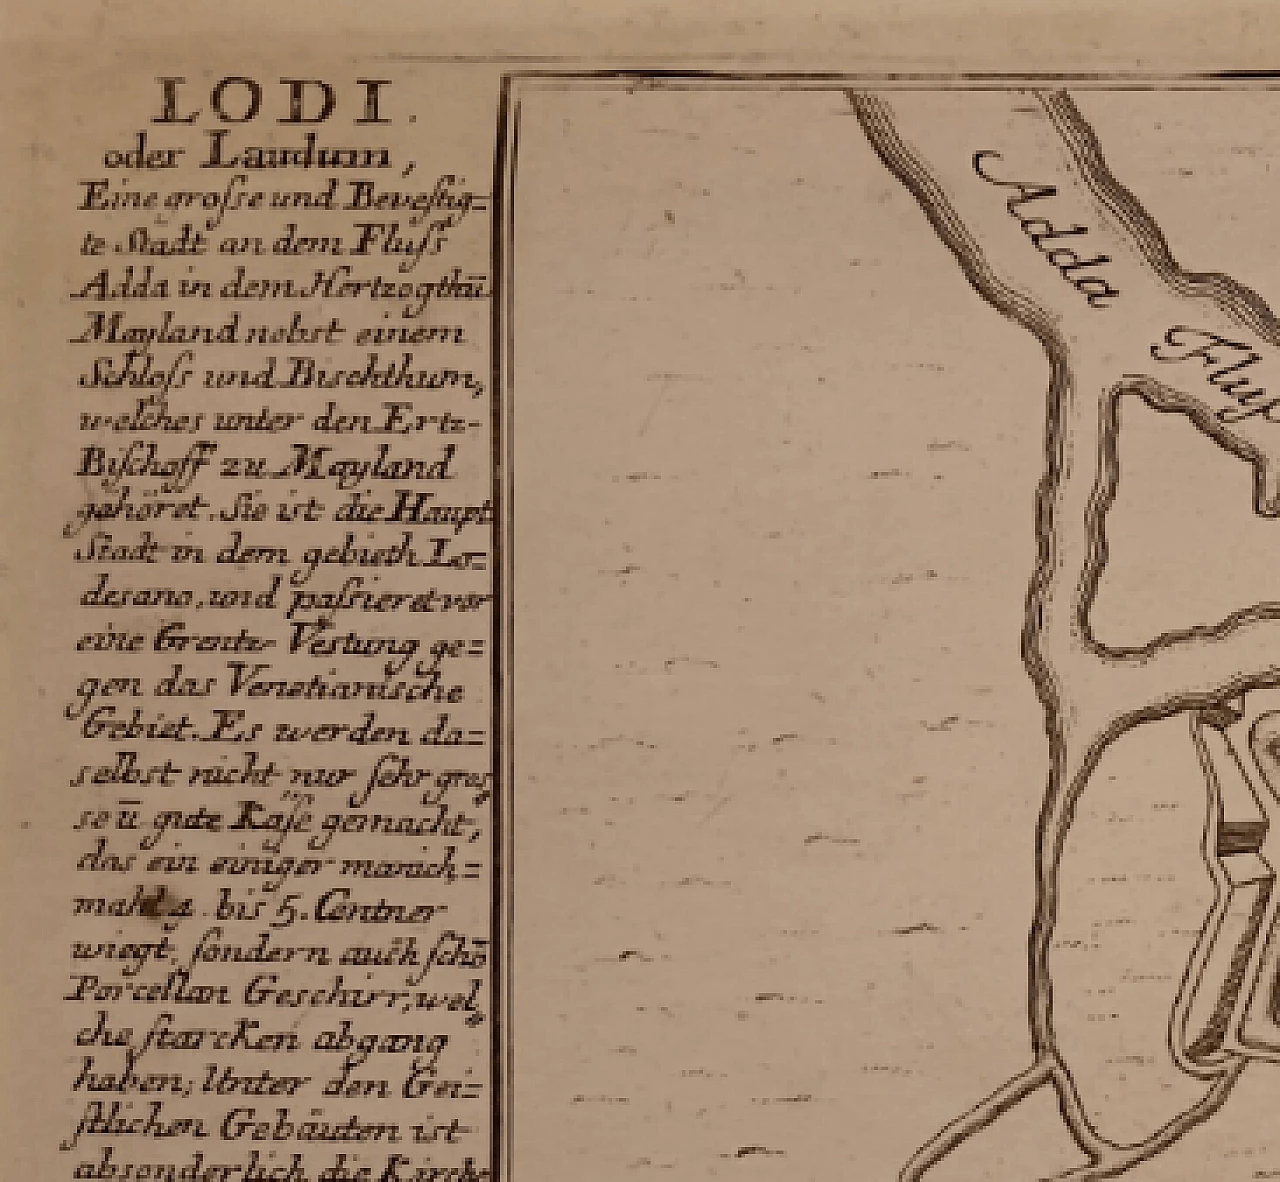 LODI.
oder Laudum,
Eine grosse und Bevestig=
te Stadt an dem Fluss
Adda in dem Hertzogthū
Mayland nebst einem
Schloss und Bischthum,
welches unter den Ertz-
Bischoff zu Mayland
gehöret. Sie ist die Haupt
Stadt in dem gebieth Lo=
desano, und passieret vor
eine Grentz Vestung ge=
gen das Venetianische
Gebiet. Es werden da=
selbst nicht nur sehr gros
se ū gute Käse gemacht,
das ein einiger manch=
mahl 4. bis 5. Centner
wiegt, sondern auch schō
Porcellan Geschirr, wel
che starcken abgang
haben; Unter den Gei=
stlichen Gebäuten ist
absonderlich die Kirche
Adda